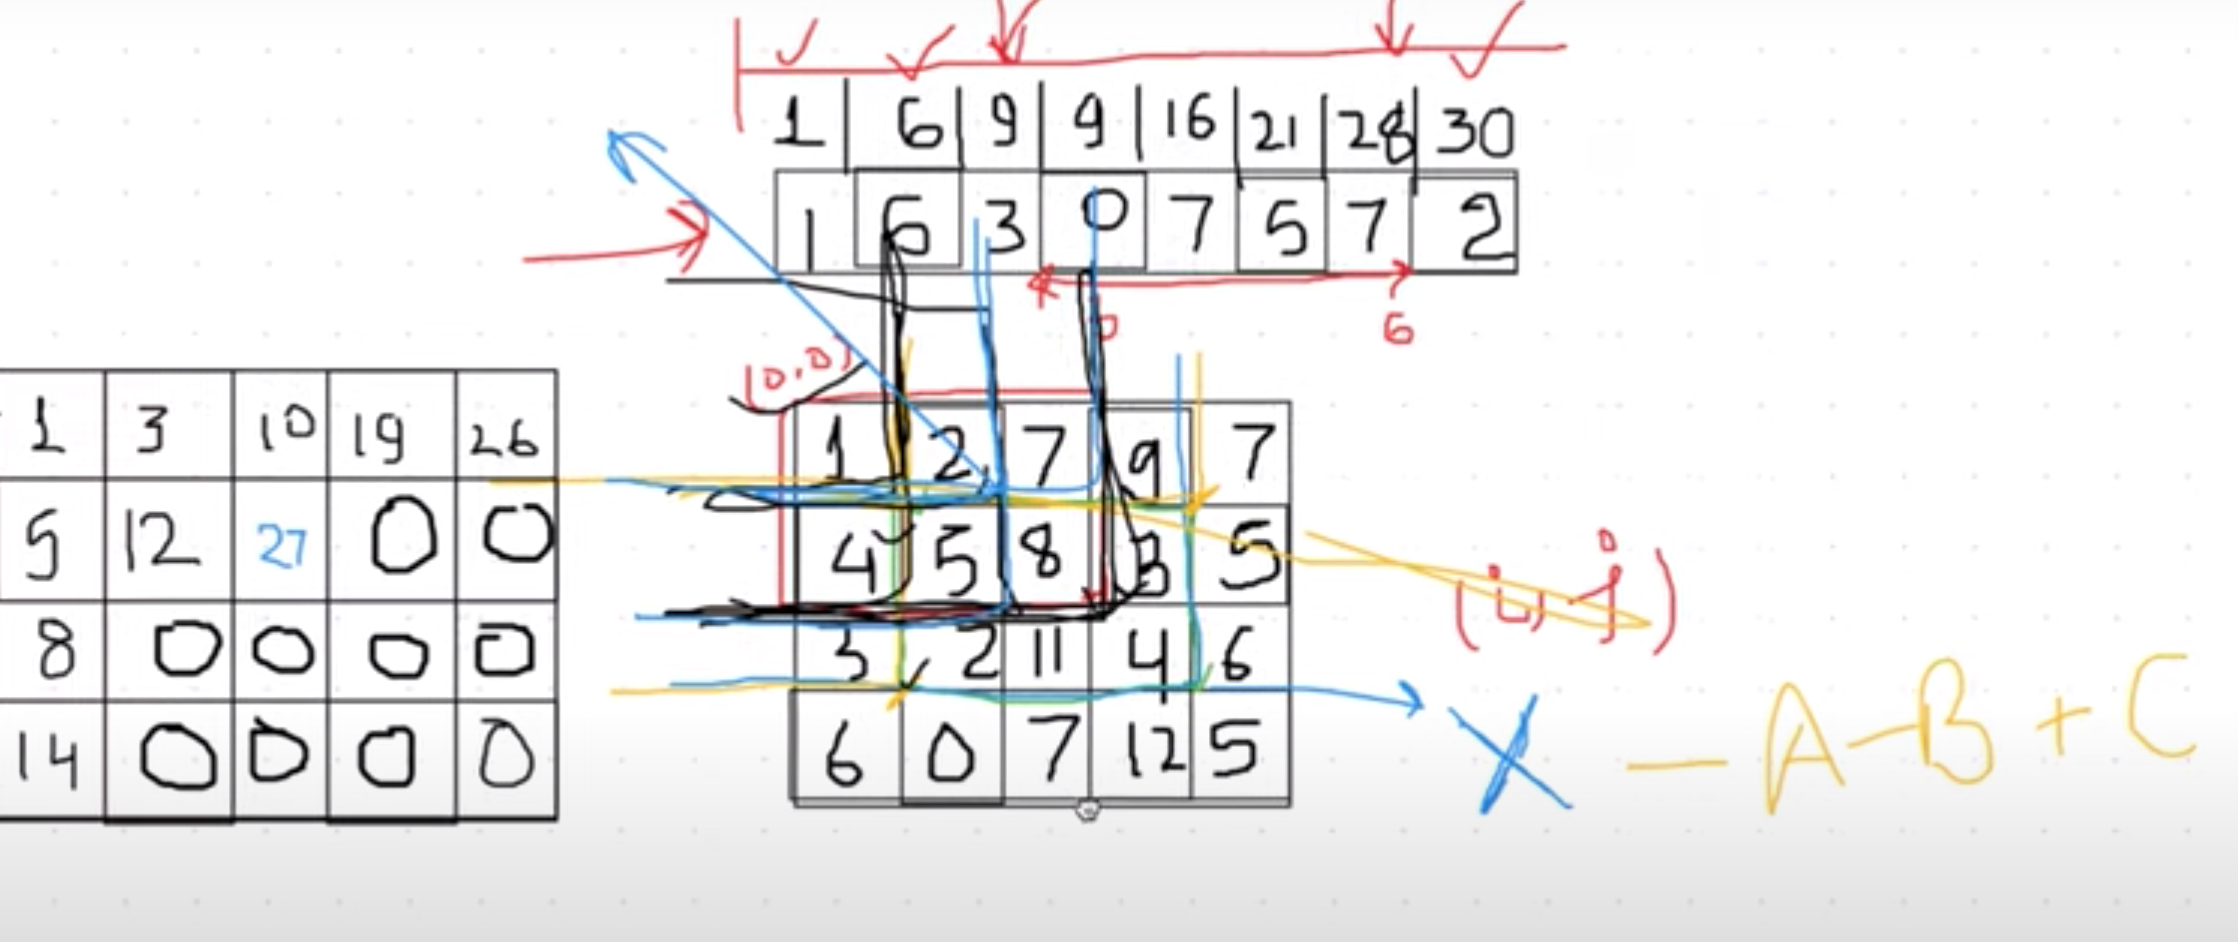 1 6 9 9 16 21 28 30
1 6 3 0 7 5 7 2
6
(0,0)
1 3 10 19 26
5 12 27 0 0
8 0 0 0 0
14 0 0 0 0
1 2 7 9 7
4 5 8 3 5
3 2 11 4 6
6 0 7 12 5
(i, j)
X - A - B + C